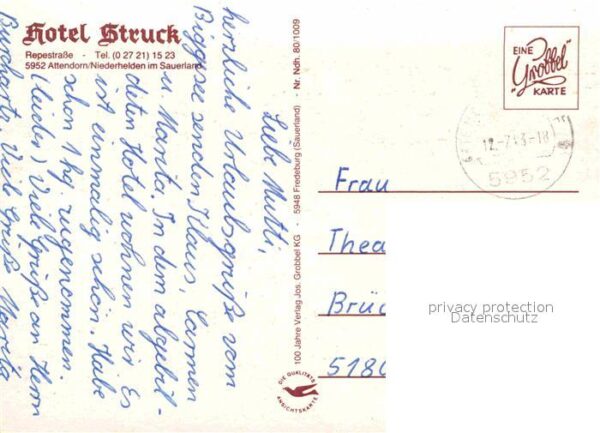 Hotel Struck
Repestraße · Tel. (0 27 21) 15 23
5952 Attendorn/Niederhelden im Sauerland
Liebe Mutti,
herzliche Urlaubsgrüße vom
Biggesee senden Klaus, Carmen
u. Marita. In dem abgebil-
deten Hotel wohnen wir. Es
ist einmalig schön. Habe
schon 1 kg zugenommen.
(leider) Viel Grüße an Herrn
Viele Grüße Marita
100 Jahre Verlag Jos. Grobbel KG · 5948 Fredeburg (Sauerland) · Nr. Ndh. 80/1009
DIE QUALITÄTS
ANSICHTSKARTE
EINE
"Grobbel"
KARTE
5952
Frau
Thea
Brüc
518
privacy protection
Datenschutz